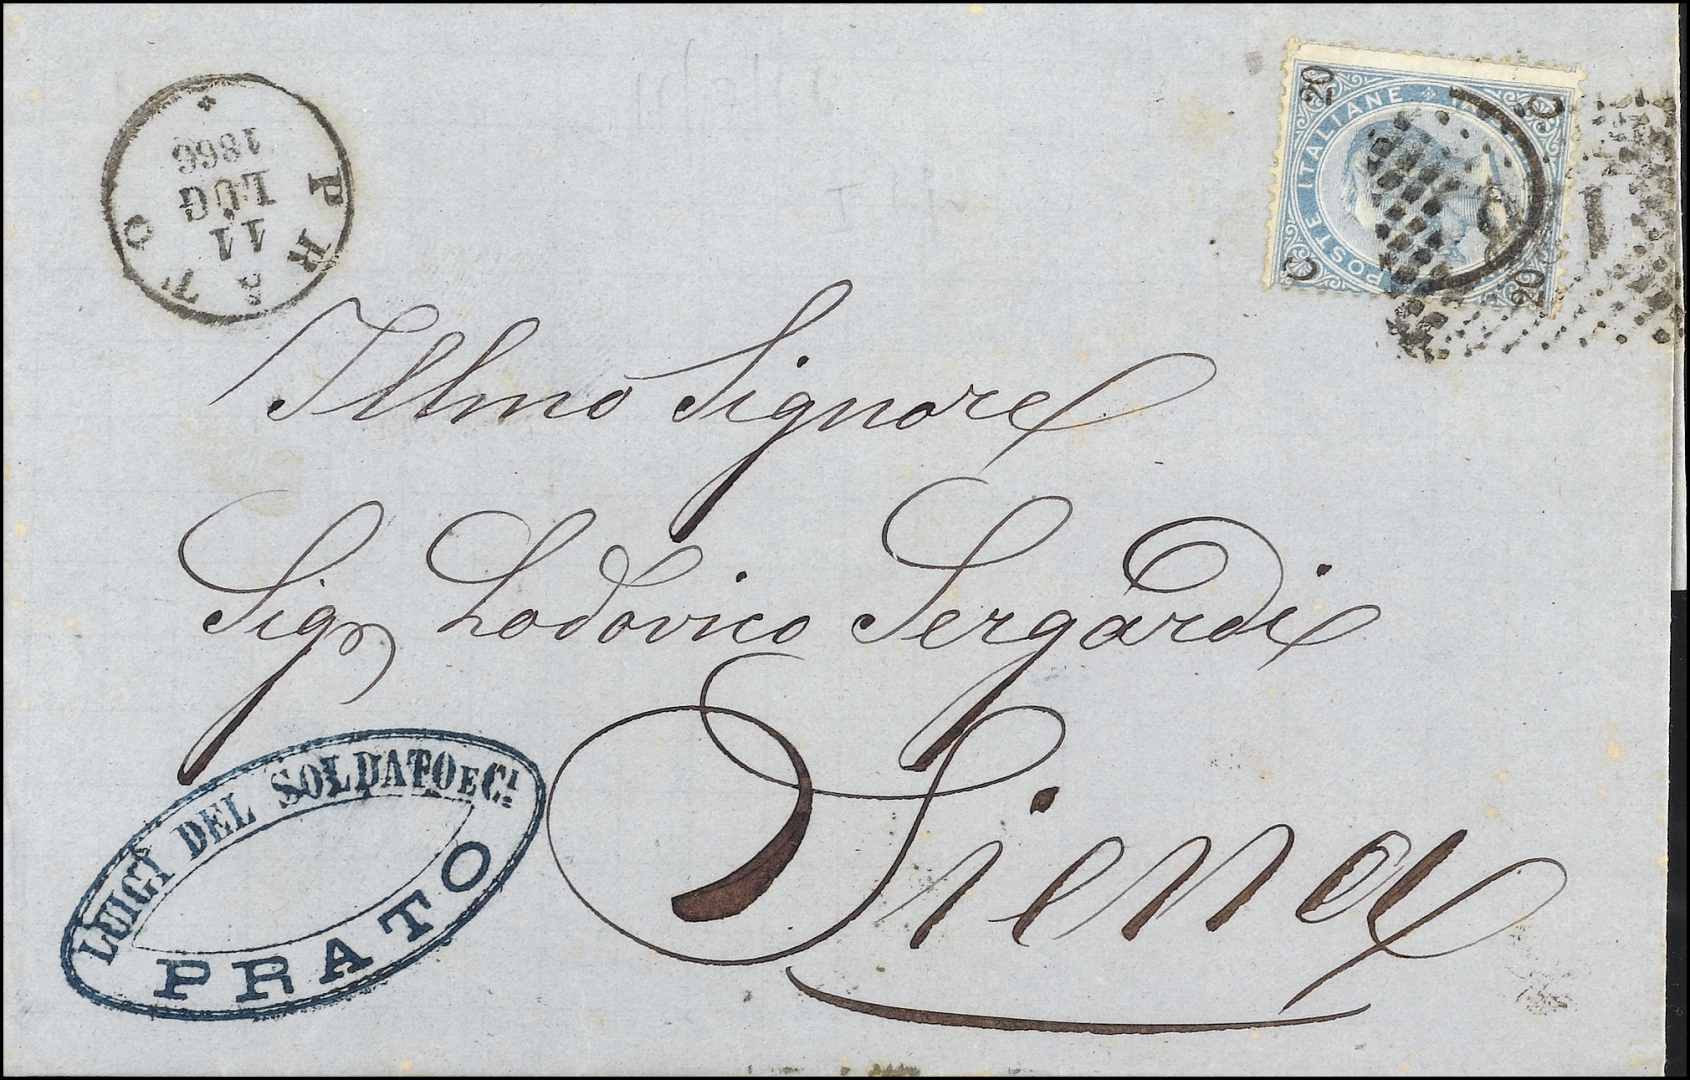 PRATO
11
LUG
1866
C 20
20 C
POSTE ITALIANE
Illmo Signore
Sigr Lodovico Sergardi
Siena
LUIGI DEL SOLDATO E C.I
PRATO